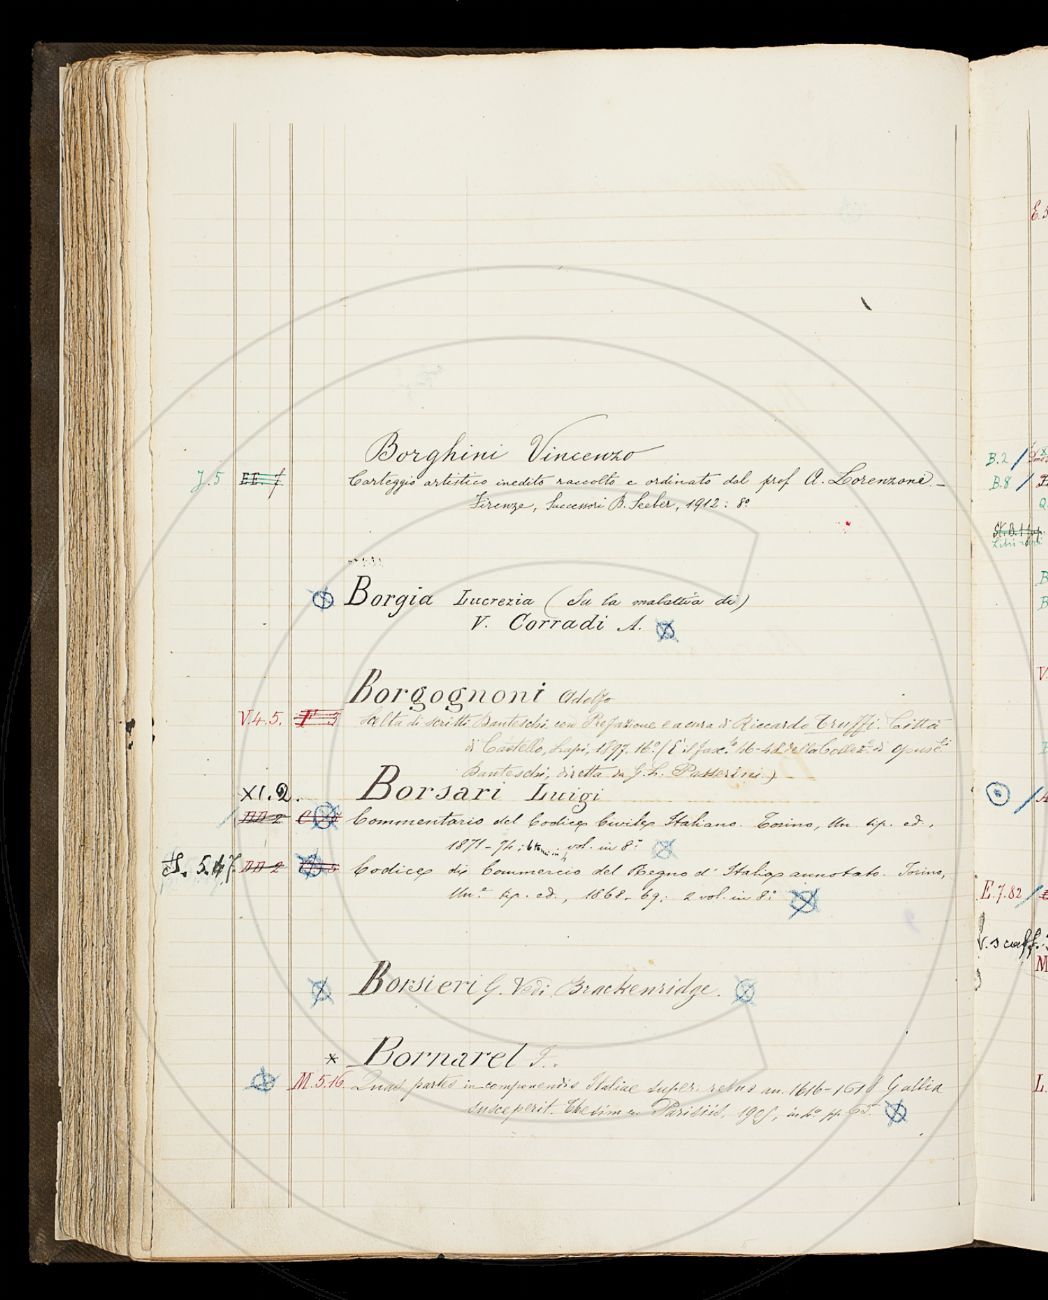 Borghini Vincenzo
J. 5 EE. 7 Carteggio artistico inedito raccolto e ordinato dal prof A. Lorenzone –
Firenze, Successori B. Seeber, 1912: 8º
Borgia Lucrezia (Su la malattia di)
V. Corradi A.
Borgognoni Adolfo
V.4.5. Scelta di scritti Danteschi con Prefazione e a cura di Riccardo Truffi. Città
di Castello, Lapi, 1897. 16º
Danteschi, diretta da G. L. Passerini)
XI.2. Borsari Luigi
DD 2 Commentario del Codice Civile Italiano. Torino, Un. tip. ed.
1871-74: vol. in 8º
DD 2 Codice di Commercio del Regno d'Italia annotato. Torino,
Un.e tip. ed., 1868-69: 2 vol. in 8º
Borsieri G. Vedi Brackenridge.
* Bornarel F.
M.5.16. Quas partes in componendis Italiae super. rebus an. 1616-1618 Gallia
susceperit. Parisiis,
B.2
B.8
E.7.82
V. scaff.